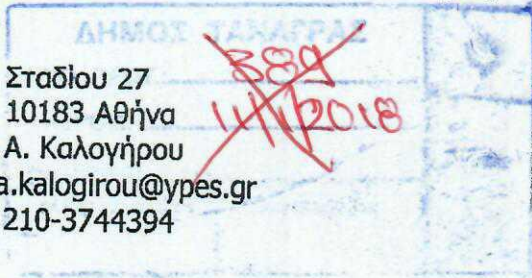 ΔΗΜΟΣ ΤΑΝΑΓΡΑΣ
389
11/1/2018
Σταδίου 27
10183 Αθήνα
Α. Καλογήρου
a.kalogirou@ypes.gr
210-3744394